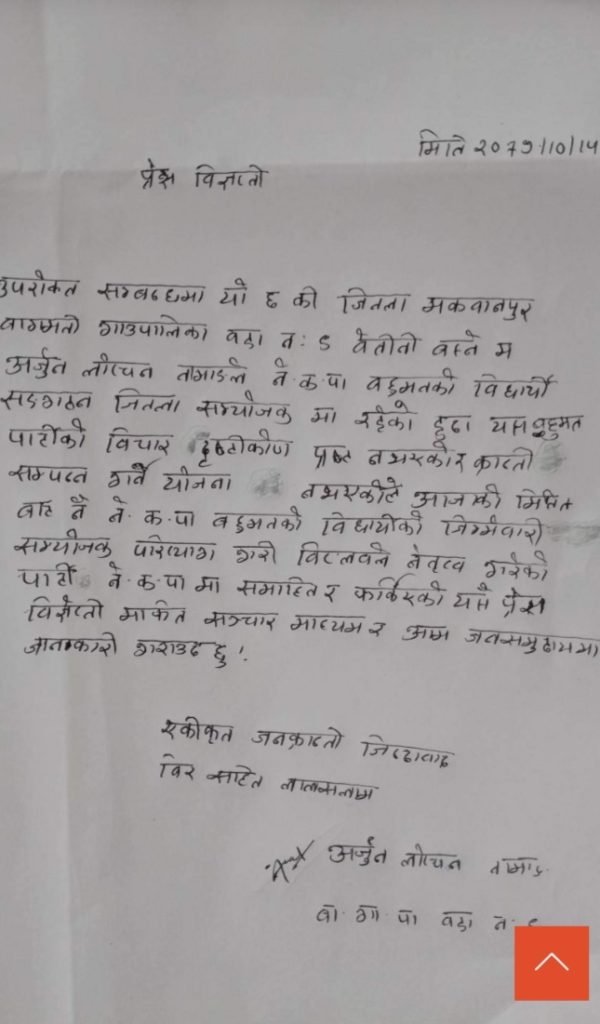 मिति २०७९।१०।१५
प्रेस विज्ञप्ती
उपरोक्त सम्बन्धमा यो छ की जिल्ला मकवानपुर
वाग्मती गाउपालिका वडा न: ९ वेतीनी वस्ने म
अर्जुन लोप्चन तामाङले ने.क.पा वहुमतको विद्यार्थी
सङगठन जिल्ला सम्योजक मा रहेको हुदा यस वहुमत
पार्टीको विचार दृष्टीकोण प्रष्ट नभएको र क्रान्ती
सम्पन्न गर्ने योजना नभएकोले आजको मिति
वाट नै ने.क.पा वहुमतको विद्यार्थीको जिम्मेवारी
सम्योजक परित्याग गरी विप्लवले नेतृत्व गरेको
पार्टी ने.क.पा मा समाहित र फर्किएको यसै प्रेस
विज्ञप्ती मार्फत सञ्चार माध्यम र आम जनसमुदायमा
जानकारी गराउद छु!
एकीकृत जनक्रान्ती जिन्दावाद
विर सहित लालसलाम
अर्जुन लोप्चन तामाङ
वा. गा. पा वडा न: ९